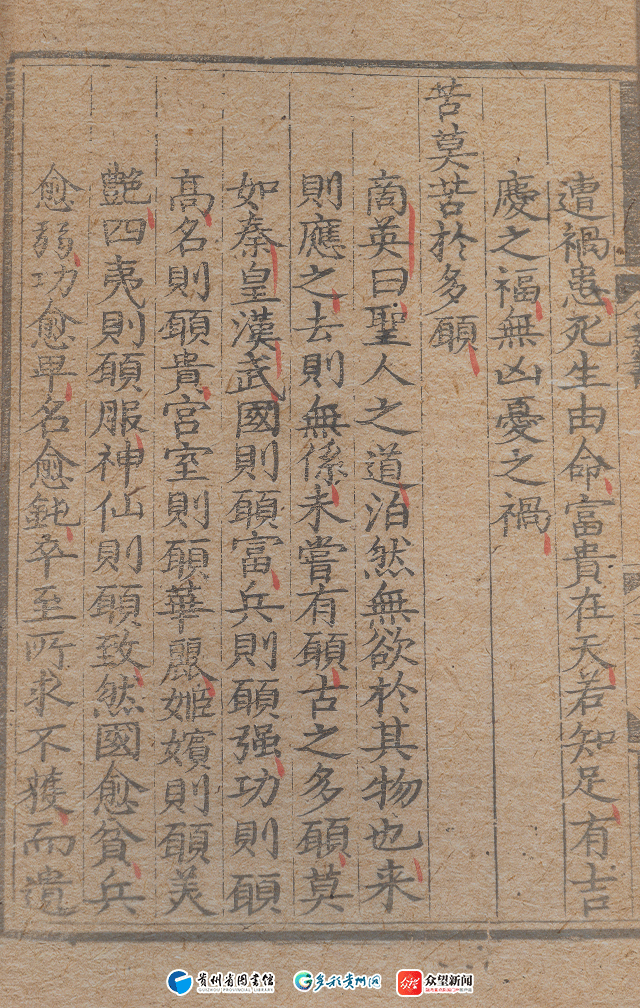 遭禍患死生由命富貴在天若知足有吉
慶之福無凶憂之禍
苦莫苦於多願
商英曰聖人之道泊然無欲於其物也来
則應之去則無係未嘗有願古之多願莫
如秦皇漢武國則願富兵則願强功則願
高名則願貴宮室則願華麗姬嬪則願美
艷四夷則願服神仙則願致然國愈貧兵
愈弱功愈卑名愈鈍卒至所求不獲而遺
贵州省图书馆
GUIZHOU PROVINCIAL LIBRARY
多彩贵州网
众望新闻